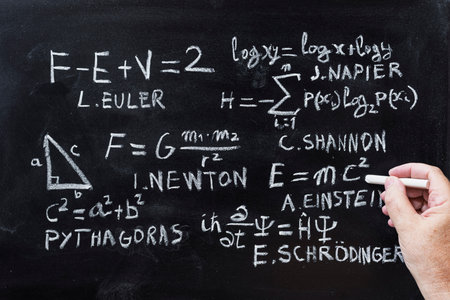 F-E+V=2
L.EULER
log xy = log x + log y
J.NAPIER
H=-∑ P(xᵢ) log₂ P(xᵢ)
n
i=1
C.SHANNON
F=G m₁·m₂
r²
I.NEWTON
E=mc²
A.EINSTEIN
a
c
b
c²=a²+b²
PYTHAGORAS
iħ ∂/∂t Ψ = ĤΨ
E.SCHRÖDINGER